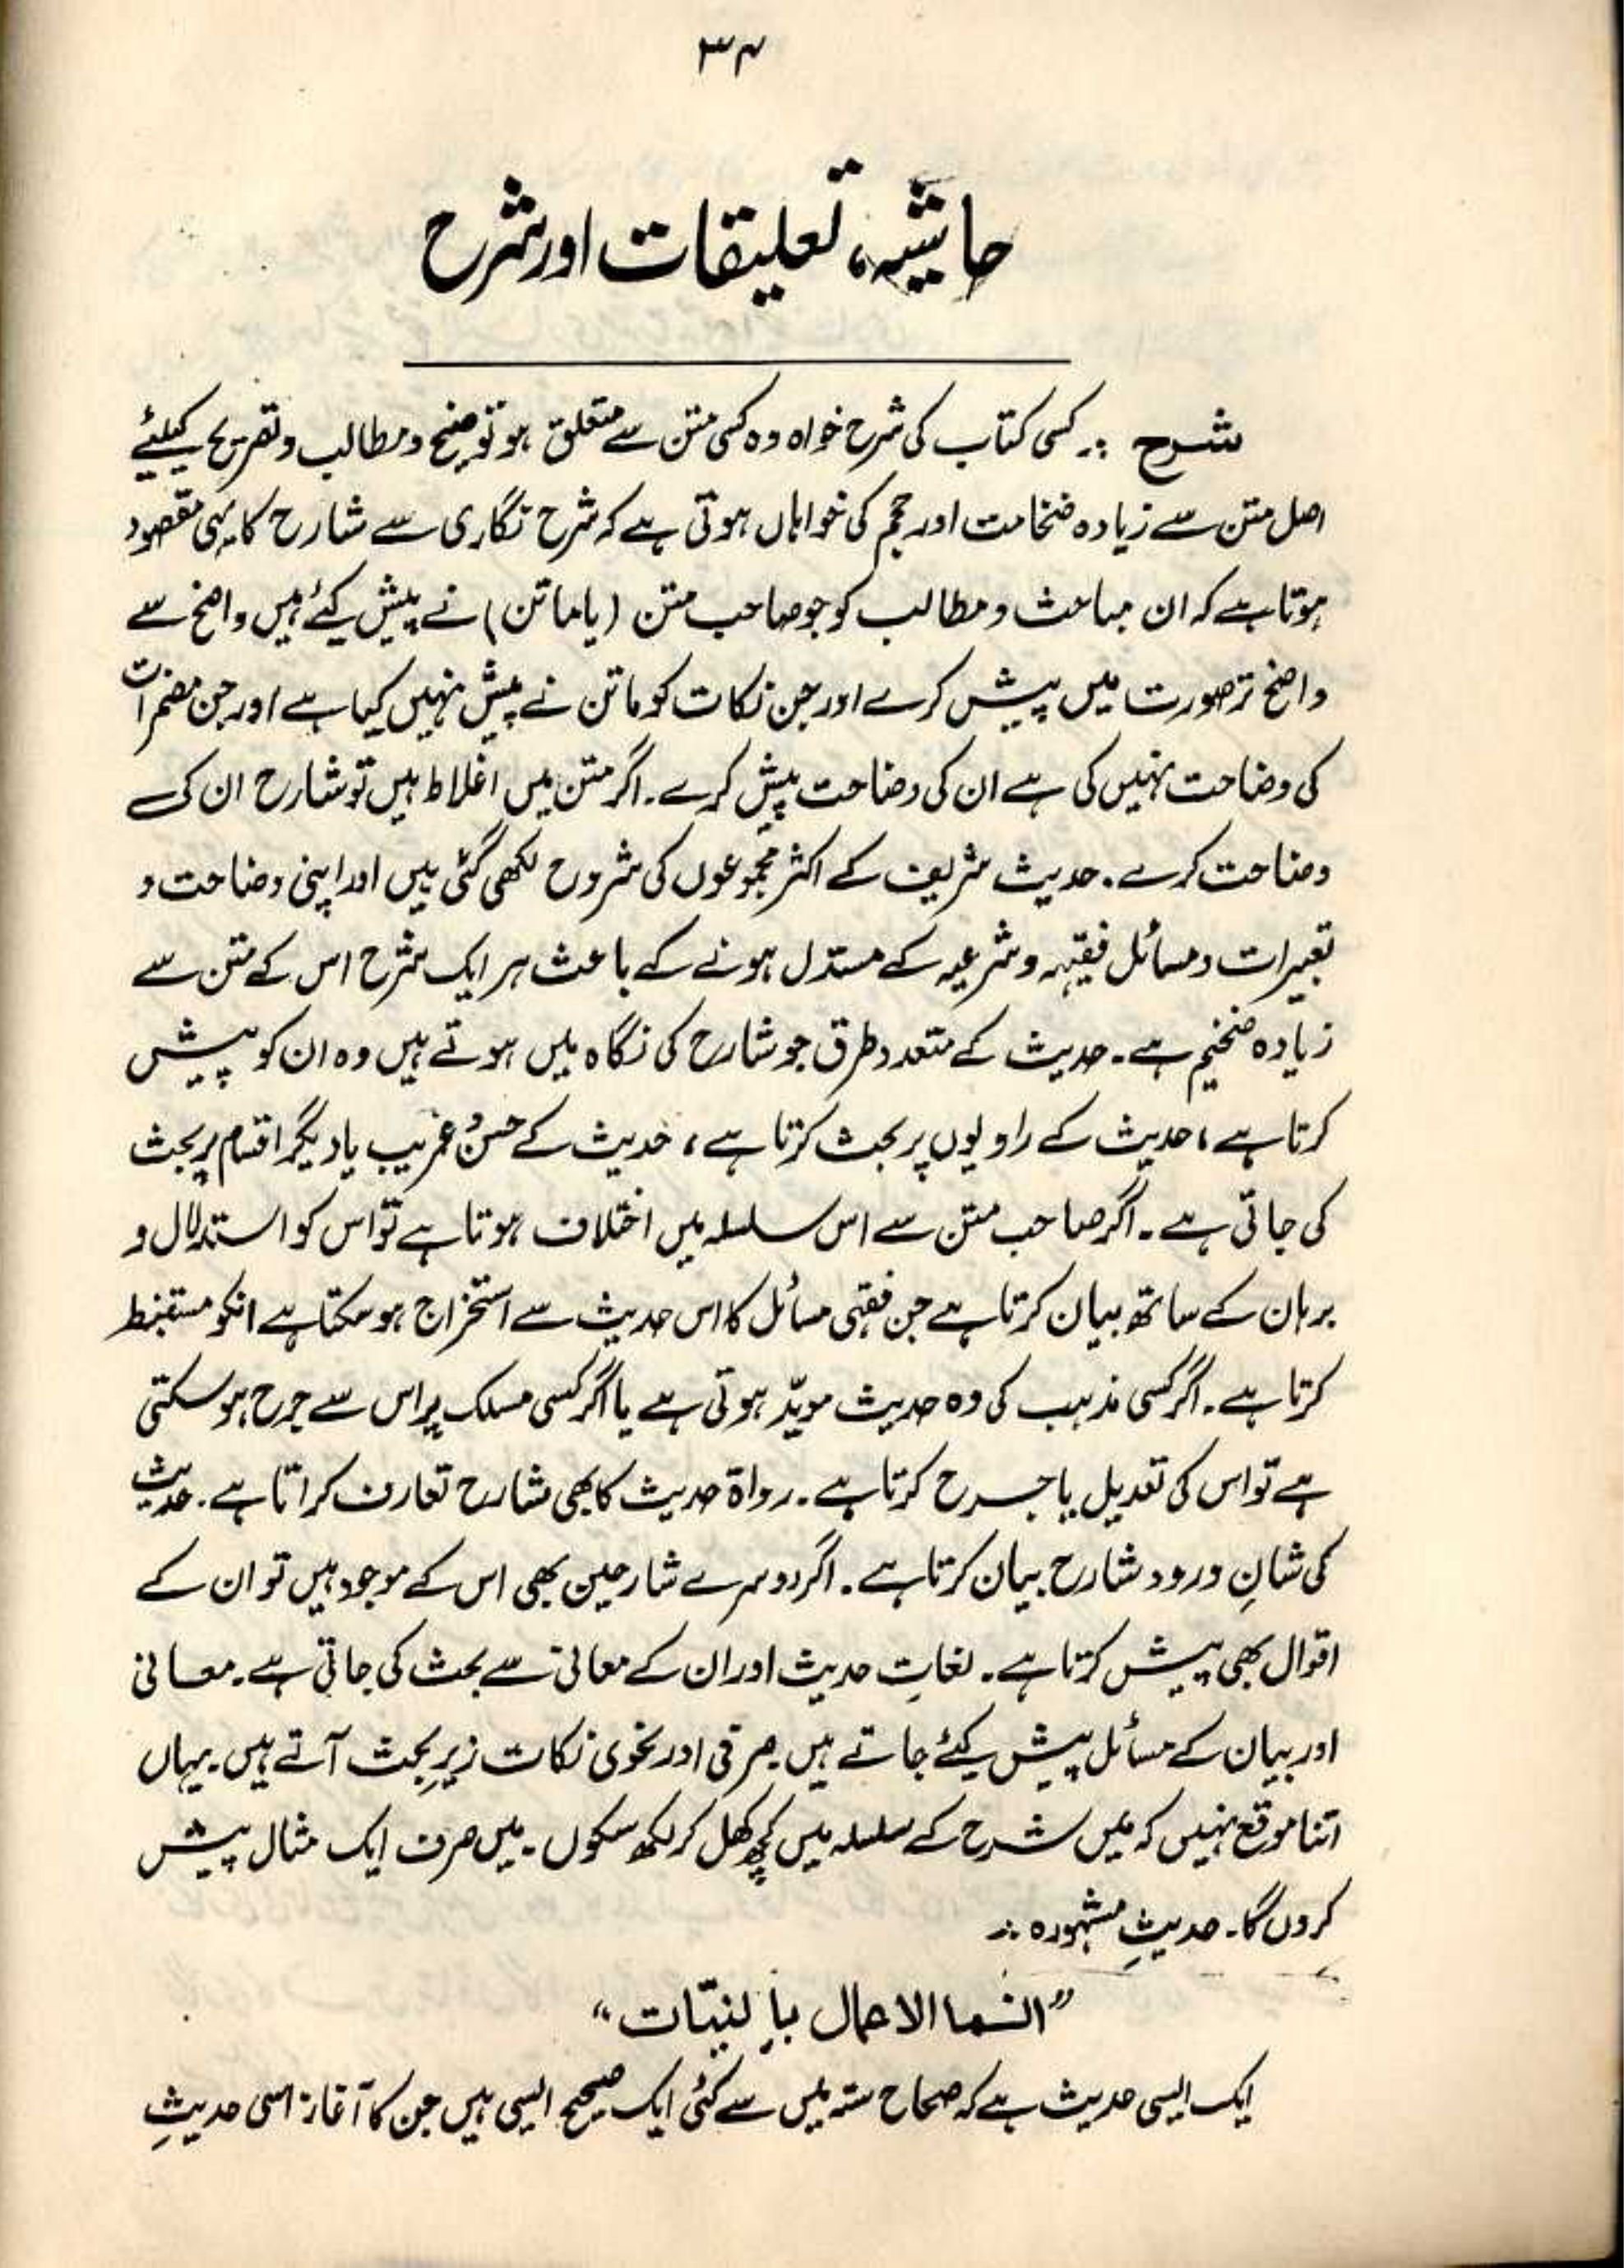 ۳۴
حاشیہ، تعلیقات اور شرح
شرح :۔ کسی کتاب کی شرح خواہ وہ کسی متن سے متعلق ہو توضیح و مطالب و تصریح کیلئے
اصل متن سے زیادہ ضخامت اور حجم کی خواہاں ہوتی ہے کہ شرح نگاری سے شارح کا یہی مقصود
ہوتا ہے کہ ان مباحث و مطالب کو جو صاحب متن (یا ماتن) نے پیش کیئے ہیں واضح سے
واضح تر صورت میں پیش کرے اور جن نکات کو ماتن نے پیش نہیں کیا ہے اور جن مضمرات
کی وضاحت نہیں کی ہے ان کی وضاحت پیش کرے۔ اگر متن میں اغلاط ہیں تو شارح ان کی
وضاحت کرے۔ حدیث شریف کے اکثر مجموعوں کی شروح لکھی گئی ہیں اور اپنی وضاحت و
تعبیرات و مسائل فقیہہ و شرعیہ کے مستدل ہونے کے باعث ہر ایک شرح اس کے متن سے
زیادہ ضخیم ہے۔ حدیث کے متعدد طرق جو شارح کی نگاہ میں ہوتے ہیں وہ ان کو پیش
کرتا ہے، حدیث کے راویوں پر بحث کرتا ہے، حدیث کے حسن غریب یا دیگر اقسام پر بحث
کی جاتی ہے۔ اگر صاحب متن سے اس سلسلہ میں اختلاف ہوتا ہے تو اس کو استدلال و
برہان کے ساتھ بیان کرتا ہے جن فقہی مسائل کا اس حدیث سے استخراج ہو سکتا ہے انکو مستنبط
کرتا ہے۔ اگر کسی مذہب کی وہ حدیث مویّد ہوتی ہے یا اگر کسی مسلک پر اس سے جرح ہو سکتی
ہے تو اس کی تعدیل یا جرح کرتا ہے۔ رواۃ حدیث کا بھی شارح تعارف کراتا ہے۔ حدیث
کی شانِ ورود شارح بیان کرتا ہے۔ اگر دوسرے شارحین بھی اس کے موجود ہیں تو ان کے
اقوال بھی پیش کرتا ہے۔ لغاتِ حدیث اور ان کے معانی سے بحث کی جاتی ہے۔ معانی
اور بیان کے مسائل پیش کیئے جاتے ہیں۔ صرفی اور نحوی نکات زیرِ بحث آتے ہیں۔ یہاں
اتنا موقع نہیں کہ میں شرح کے سلسلہ میں کچھ کھل کر لکھ سکوں۔ میں صرف ایک مثال پیش
کروں گا۔ حدیثِ مشہورہ :۔
”انما الاعمال بالنیّات“
ایک ایسی حدیث ہے کہ صحاح ستہ میں سے کئی ایک صحیح ایسی ہیں جن کا آغاز اسی حدیثِ